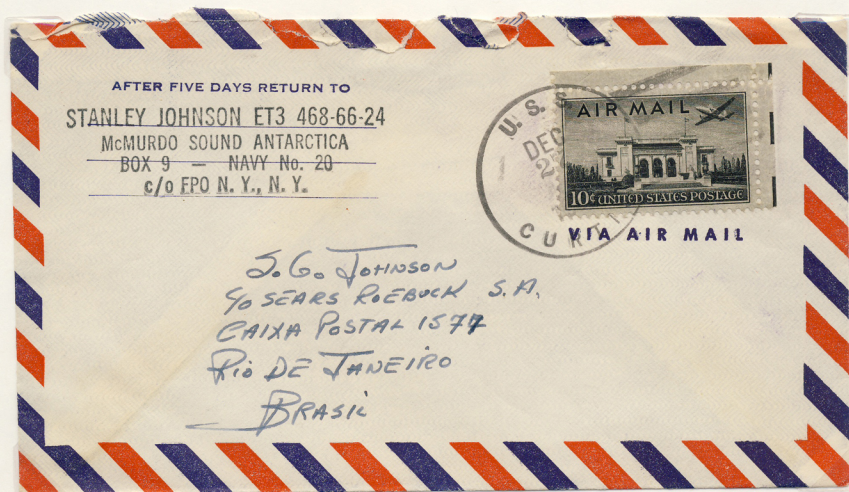 AFTER FIVE DAYS RETURN TO
STANLEY JOHNSON ET3 468-66-24
McMURDO SOUND ANTARCTICA
BOX 9 — NAVY No. 20
c/o FPO N. Y., N. Y.
U. S. S.
DEC
2
CURTI
AIR MAIL
10¢ UNITED STATES POSTAGE
VIA AIR MAIL
S. G. JOHNSON
c/o SEARS ROEBUCK S.A.
CAIXA POSTAL 1577
RIO DE JANEIRO
BRASIL